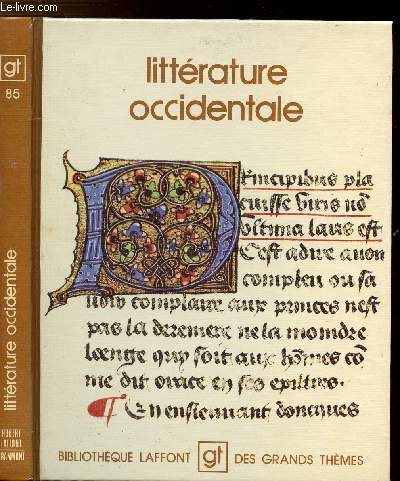 © Le-livre.com
gt
85
littérature occidentale
ROBERT
LAFFONT
GRAMMONT
littérature
occidentale
Principibus pla
cuisse viris nō
vltima laus est
Cest adire avoir
compleu ou sa
uoir complaire aux princes nest
pas la derreniere ne la moindre
loenge quy soit aux hōmes cō
me dit orace en ses epistres.
¶ En ensieuant doncques
BIBLIOTHÈQUE LAFFONT gt DES GRANDS THÈMES